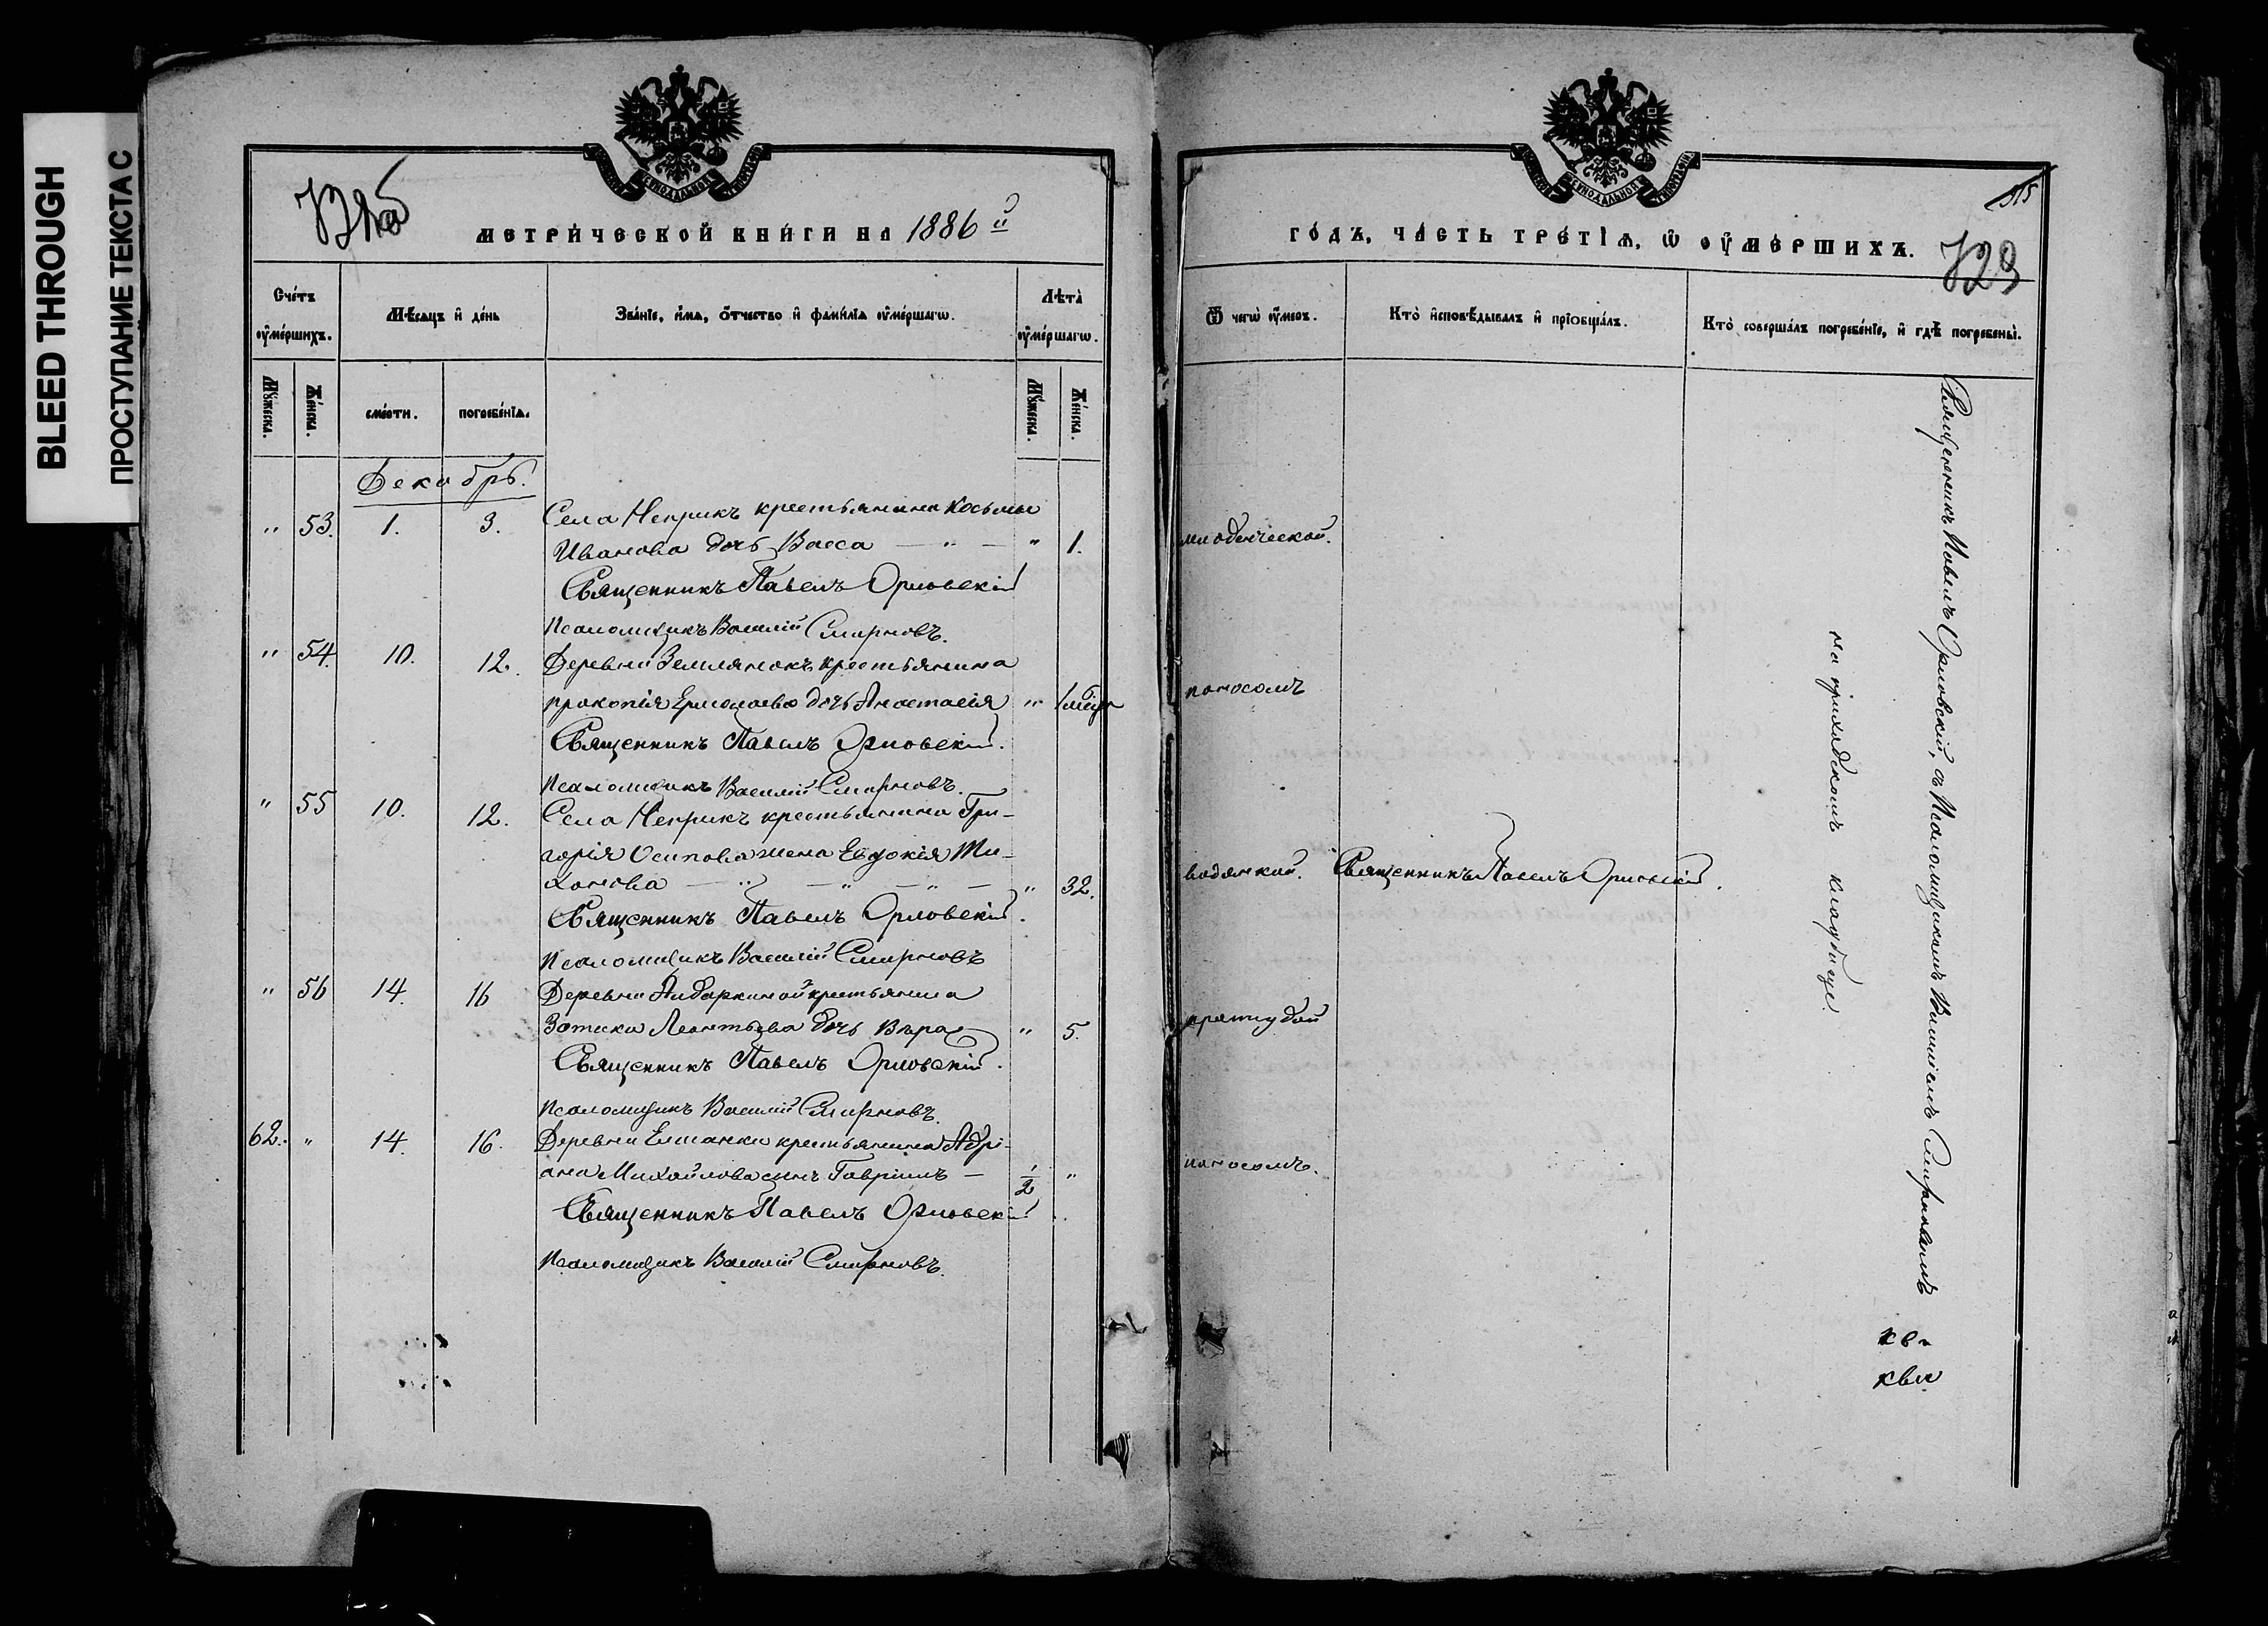 BLEED THROUGH
ПРОСТУПАНИЕ ТЕКСТА С
МЕТРИЧЕСКОЙ КНИГИ НА 1886 й
Счетъ оумершихъ.
Мѣсяцъ и день
Званіе, имя, отчество и фамилія оумершагѡ.
Лѣта оумершагѡ.
Мужеска.
Женска.
смерти.
погребенія.
Мужеска.
Женска.
Декабрь.
" 53. 1. 3. Села Неприкъ крестьянина Косьмы
Иванова дочь Васса — " — " 1.
Священникъ Павелъ Орловскій
Псаломщикъ Василій Смирновъ.
" 54. 10. 12. Деревни Землянокъ крестьянина
Прокопія Ермолаева дочь Анастасія "
Священникъ Павелъ Орловскій.
Псаломщикъ Василій Смирновъ.
" 55 10. 12. Села Неприкъ крестьянина Гри-
горія Осипова жена Евдокія Ти-
хонова — " — " — " — " 32.
Священникъ Павелъ Орловскій.
Псаломщикъ Василій Смирновъ
" 56 14. 16 Деревни крестьянина
Зотика Леонтьева дочь Вѣра " 5.
Священникъ Павелъ Орловскій.
Псаломщикъ Василій Смирновъ.
62. " 14. 16. Деревни Елшанки крестьянина Адрі-
ана Михайлова сынъ Гавріилъ — 1/2 "
Священникъ Павелъ Орловскій
Псаломщикъ Василій Смирновъ.
ГОДЪ, ЧАСТЬ ТРЕТІЯ, Ѡ ОУМЕРШИХЪ.
515
723
Ѿ чегѡ оумеръ.
Кто исповѣдывалъ и пріобщалъ.
Кто совершалъ погребеніе, и гдѣ погребены.
младенческой.
поносомъ
водянкой. Священникъ Павелъ Орловскій.
простудой
поносомъ.
Священникъ Павелъ Орловскій, съ Псаломщикомъ Василіемъ Смирновымъ
на приходскомъ кладбище.